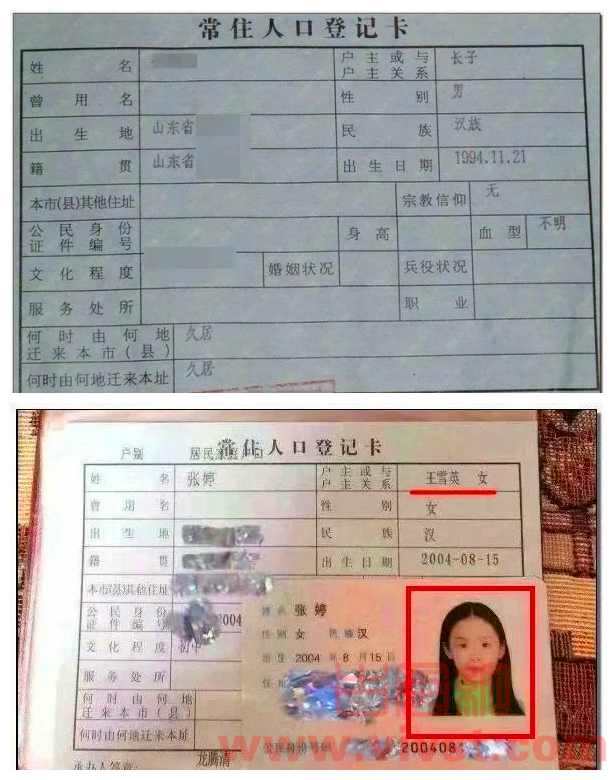 常住人口登记卡
姓名
户主或与户主关系 长子
曾用名 性别 男
出生地 山东省 民族 汉族
籍贯 山东省 出生日期 1994.11.21
本市(县)其他住址 宗教信仰 无
公民身份证件编号 身高 血型 不明
文化程度 婚姻状况 兵役状况
服务处所 职业
何时由何地迁来本市(县) 久居
何时由何地迁来本址 久居
户别
常住人口登记卡
姓名 张婷 户主或与户主关系 王雪英 女
曾用名 性别 女
出生地 民族 汉
籍贯 出生日期 2004-08-15
本市(县)其他住址
公民身份证件编号 2004
文化程度 初中
服务处所
何时由何地迁来本市(县)
何时由何地迁来本址
承办人签章: 龙腾清
姓名 张婷
性别 女 民族 汉
出生 2004 年 8 月 15 日
住址
公民身份号码 2004081